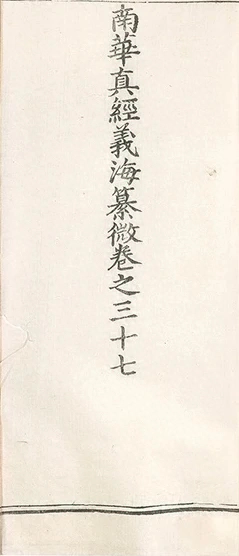 南華真經義海纂微卷之三十七